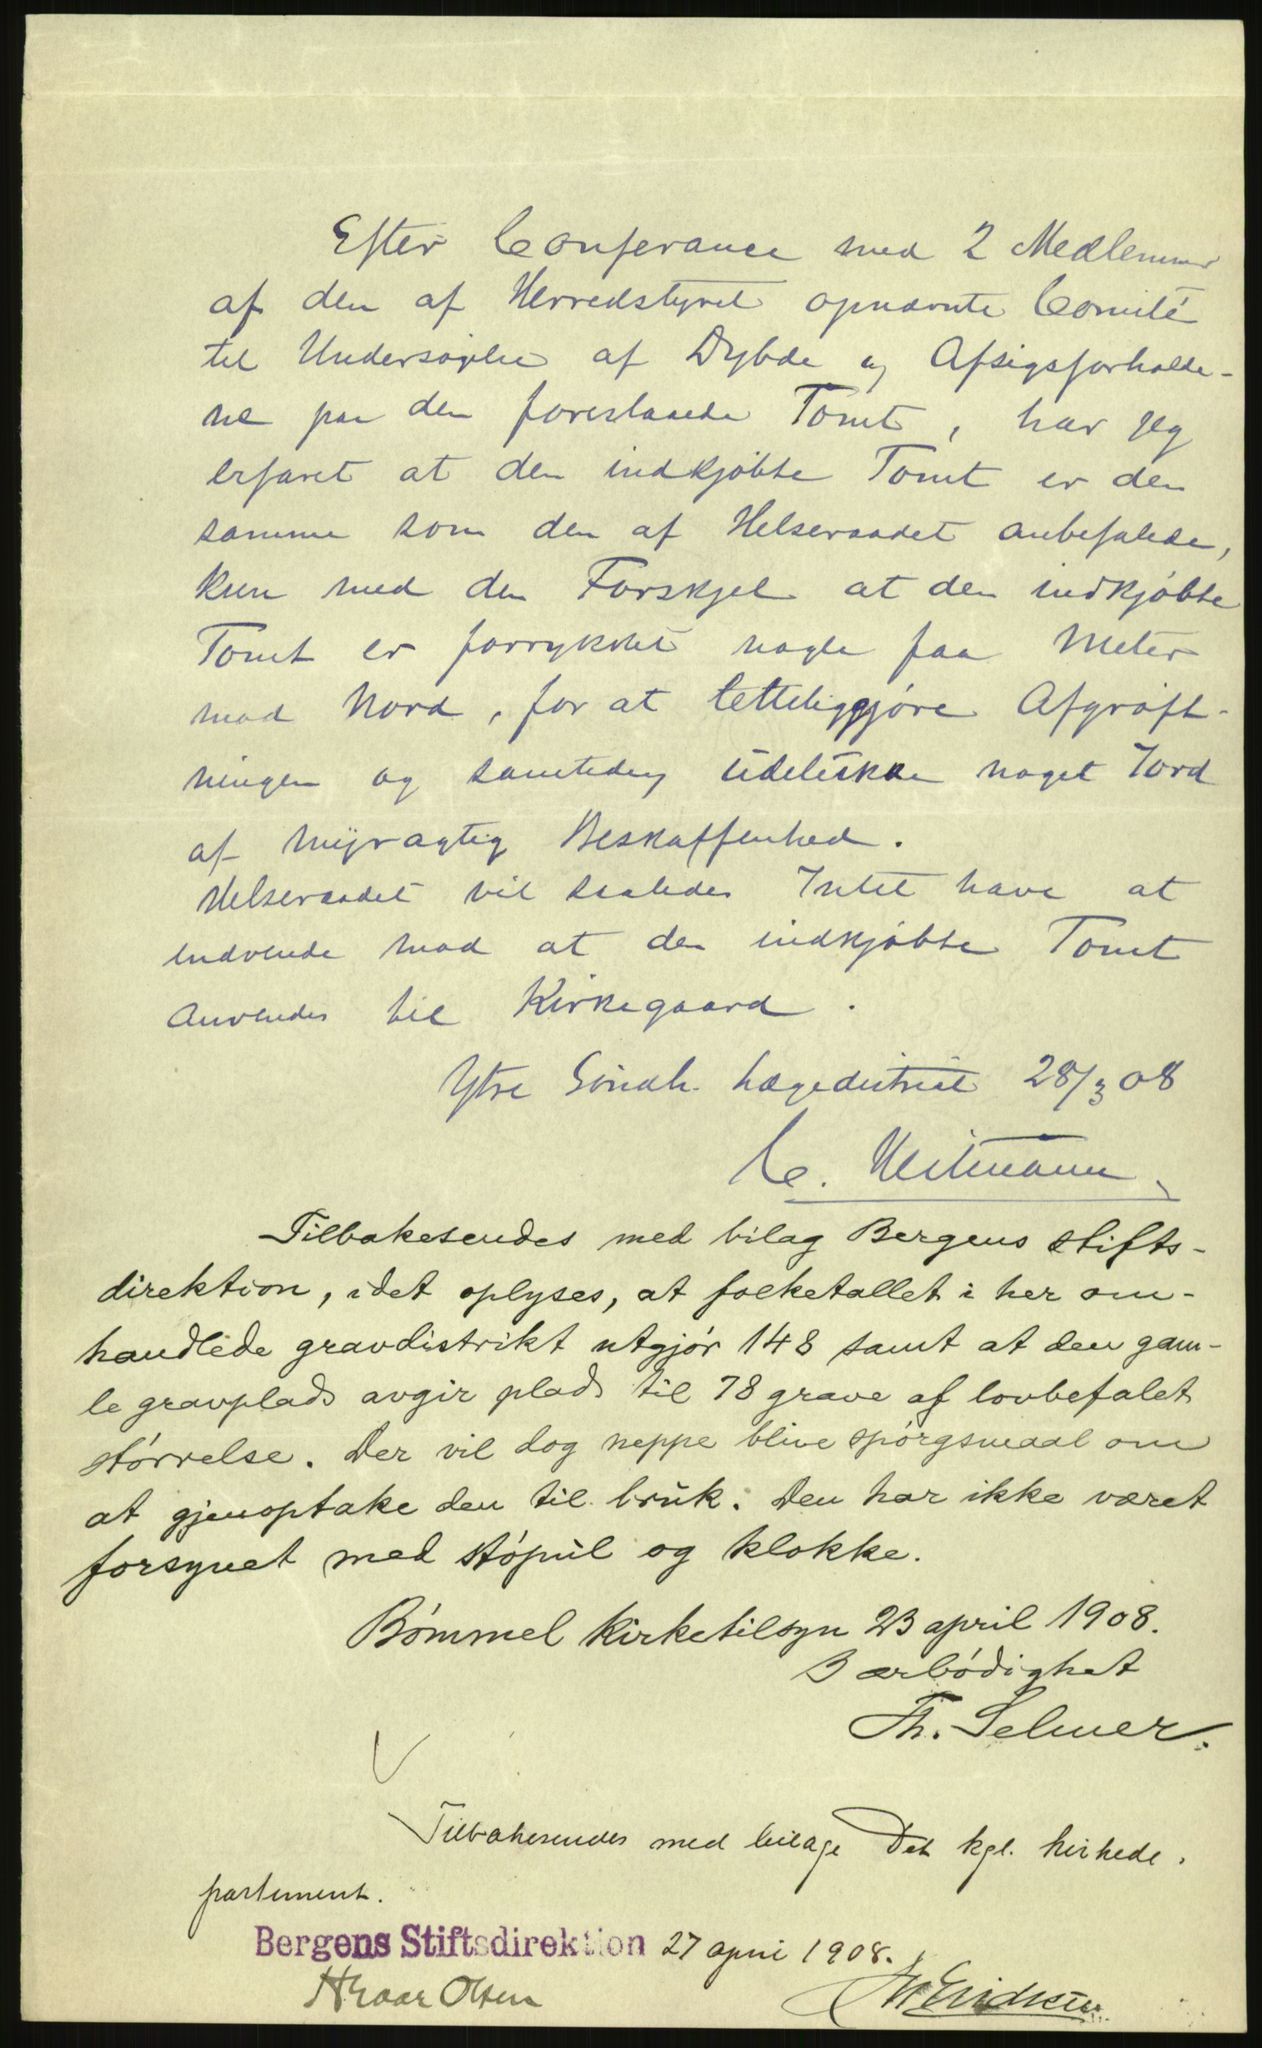 Efter Conferance med 2 Medlemmer
af den af Herredstyret opnævnte Comité
til Undersøgelse af Dybde og Afsigsforholde-
ne paa den foreslaaede Tomt, har jeg
erfaret at den indkjøbte Tomt er den
samme som den af Helseraadet anbefalede,
kun med den Forskjel at den indkjøbte
Tomt er forrykket nogle faa Meter
mod Nord, for at letteliggjøre Afgrøft-
ningen og samtidig udelukke noget Jord
af myragtig Beskaffenhed.
Helseraadet vil saaledes Intet have at
indvende mod at den indkjøbte Tomt
anvendes til Kirkegaard.
Ytre Søndh. Lægedistrict 28/3 08
C. Heitmann
Tilbakesendes med bilag Bergens stifts-
direktion, idet oplyses, at folketallet i her om-
handlede gravdistrikt utgjør 148 samt at den gam-
le gravplads avgir plads til 78 grave af lovbefalet
størrelse. Der vil dog neppe blive spørgsmaal om
at gjenoptake den til bruk. Den har ikke været
forsynet med støpul og klokke.
Bømmel Kirketilsyn 23 april 1908.
Ærbødighet
Th. Selmer.
Tilbakesendes med bilage Det kgl. kirkede.
partement.
Bergens Stiftsdirektion 27 april 1908.
Hroar Olsen